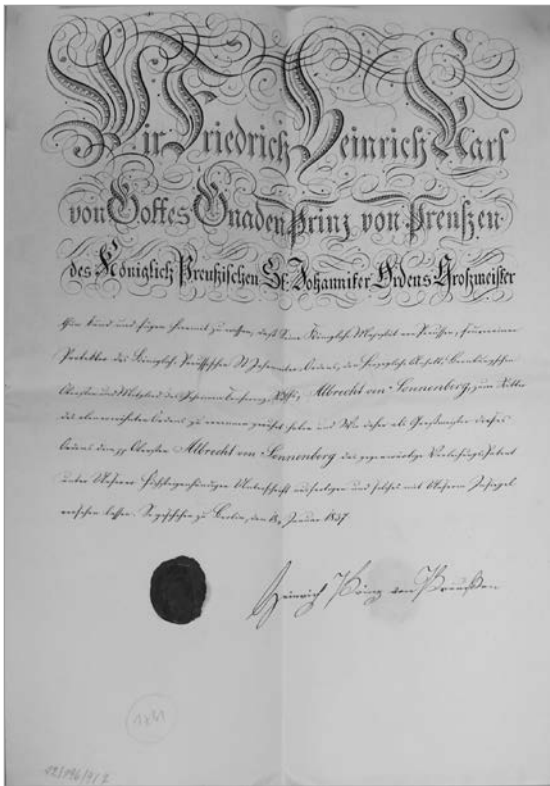 Wir Friedrich Heinrich Karl
von Gottes Gnaden Prinz von Preußen
des Königlich Preußischen St. Johanniter Ordens Großmeister
thun kund und fügen hiermit zu wissen, daß Seine Königliche Majestät von Preussen,
Protektor des Königlich Preussischen St Johanniter Ordens, den Herzoglich Anhalt Bernburgischen
Obersten und Mitglied des Albrecht von Sonnenberg, zum Ritter
des ebenerwähnten Ordens zu ernennen geruhet haben und Wir daher als Großmeister dieses
Ordens dem pp Obersten Albrecht von Sonnenberg das gegenwärtige Verleihungs Patent
unter Unserer Höchsteigenhändigen Unterschrift ausfertigen und solches mit Unserem Insiegel
versehen lassen. So geschehen zu Berlin, den 18 Januar 1837
Heinrich Prinz von Preussen